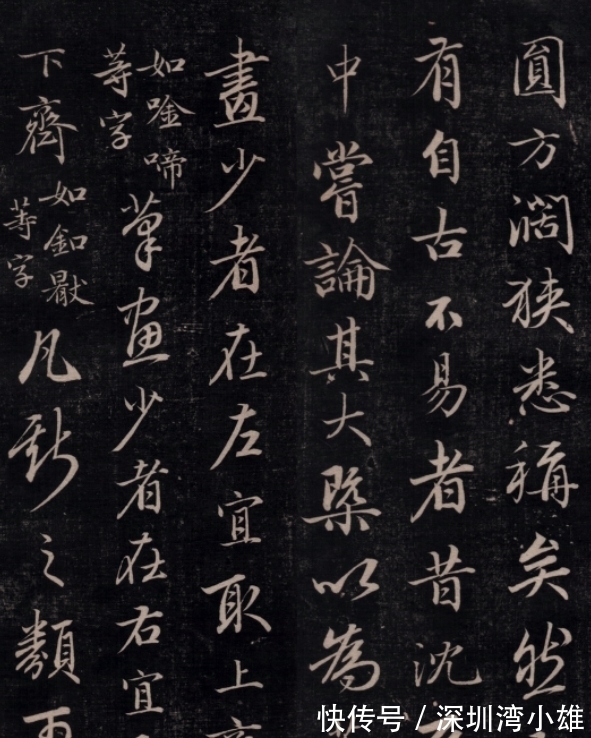 圓方濶狭悉稱矣然
有自古不易者昔沈
中嘗論其大槩以為
畫少者在左宜取上
如唫啼
等字
筆画少者在右宜
下齊
如釦
等字
凡斯之類
快传号 / 深圳湾小雄